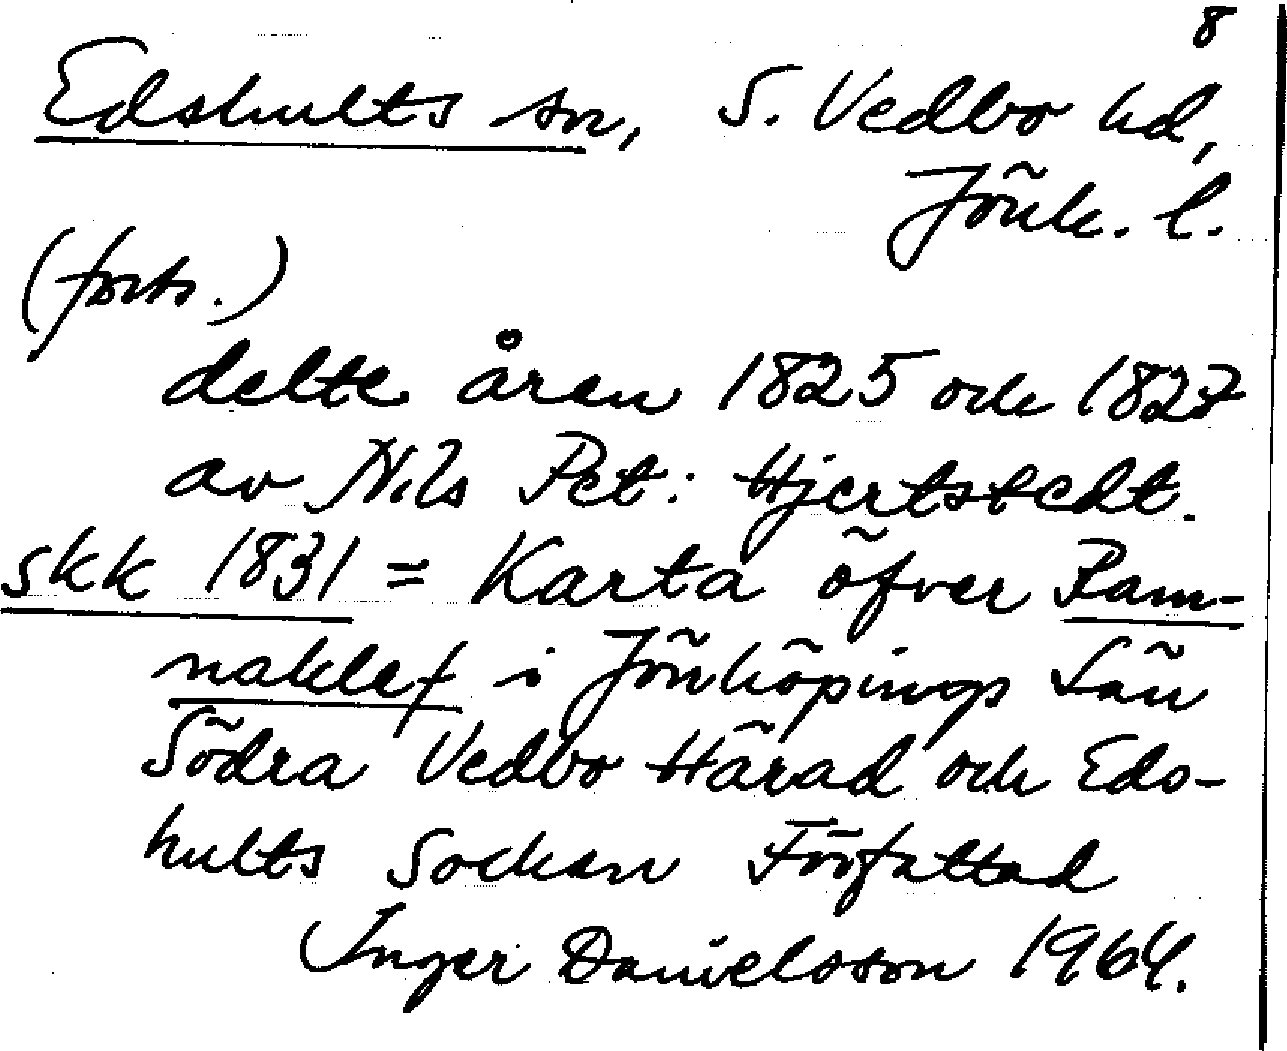 8
Edshults sn, S. Vedbo hd,
Jönk. l.
(forts.)
delte åren 1825 och 1827
av Nils Pet: Hjertstedt.
skk 1831 = Karta öfver Ram-
naklef i Jönköpings Län
Södra Vedbo Härad och Eds-
hults Socken Författad
Inger Danielsson 1964.